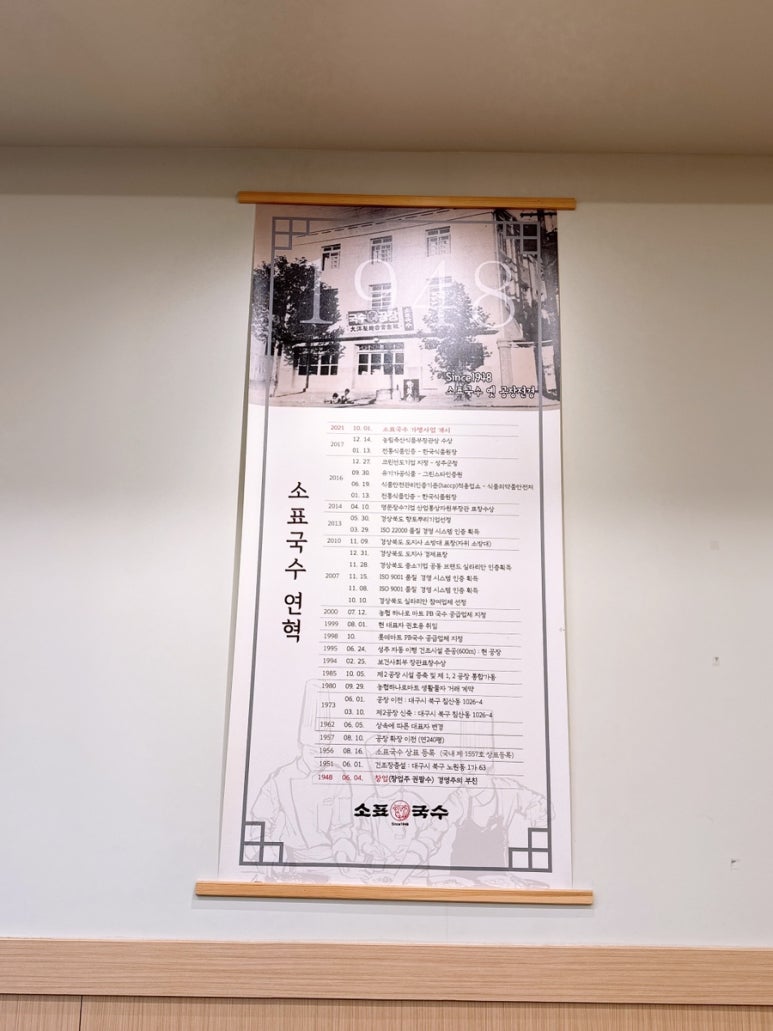 1948
국수공장
Since1948
소표국수 옛 공장전경
소표국수 연혁
2021 10. 01. 소표국수 가맹사업 개시
2017 12. 14. 농림축산식품부장관상 수상
01. 13. 전통식품인증 - 한국식품원장
2016 12. 27. 크린선도기업 지정 - 성주군청
09. 30. 유기가공식품 - 그린스타인증원
06. 19. 식품안전관리인증기준(haccp)적용업소 - 식품의약품안전처
01. 13. 전통식품인증 - 한국식품원장
2014 04. 10. 명문장수기업 산업통상자원부장관 표창수상
2013 05. 30. 경상북도 향토뿌리기업선정
03. 29. ISO 22000 품질 경영 시스템 인증 획득
2010 11. 09. 경상북도 도지사 소방대 표창(자위 소방대)
2007 12. 31. 경상북도 도지사 경제표창
11. 28. 경상북도 중소기업 공동 브랜드 실라리안 인증획득
11. 15. ISO 9001 품질 경영 시스템 인증 획득
11. 08. ISO 9001 품질 경영 시스템 인증 획득
10. 10. 경상북도 실라리안 참여업체 선정
2000 07. 12. 농협 하나로 마트 PB 국수 공급업체 지정
1999 08. 01. 현 대표자 권호용 취임
1998 10. 롯데마트 PB국수 공급업체 지정
1995 06. 24. 성주 자동 이행 건조시설 준공(600m) : 현 공장
1994 02. 25. 보건사회부 장관표창수상
1985 10. 05. 제2공장 시설 증축 및 제 1, 2 공장 통합가동
1980 09. 29. 농협하나로마트 생활물자 거래 계약
1973 06. 01. 공장 이전 : 대구시 북구 침산동 1026-4
03. 10. 제2공장 신축 : 대구시 북구 침산동 1026-4
1962 06. 05. 상속에 따른 대표자 변경
1957 08. 10. 공장 확장 이전 (연240평)
1956 08. 16. 소표국수 상표 등록 (국내 제 1557호 상표등록)
1951 06. 01. 건조장증설 : 대구시 북구 노원동 1가 63
1948 06. 04. 창업(창업주 권팔수) 경영주의 부친
소표국수
Since1948